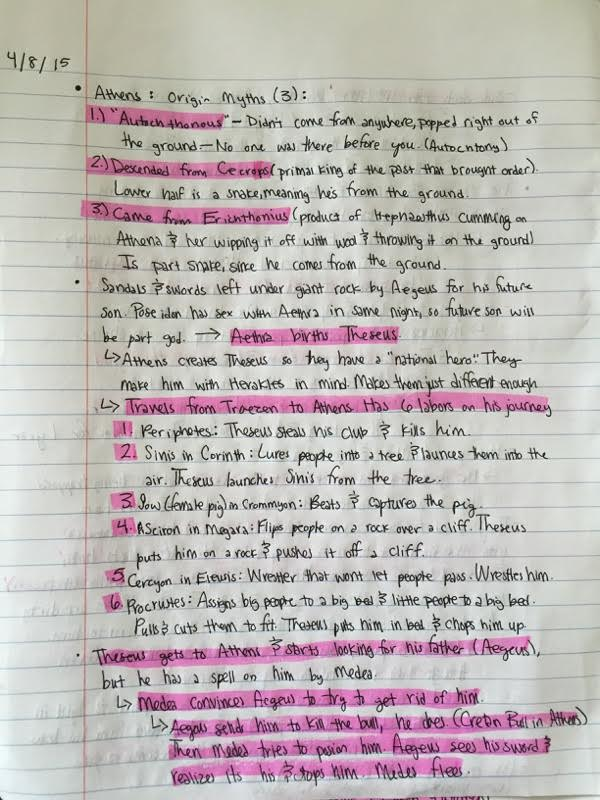 4/8/15
• Athens: Origin Myths (3):
1.) "Autochthonous" - Didn't come from anywhere, popped right out of
the ground - No one was there before you. (Autocntony)
2.) Descended from Cecrops (primal king of the past that brought order).
Lower half is a snake, meaning he's from the ground.
3.) Came from Ericnthonius (product of Hephaesthus cumming on
Athena & her wipping it off with wool & throwing it on the ground)
Is part snake, since he comes from the ground.
• Sandals & swords left under giant rock by Aegeus for his future
son. Poseidon has sex with Aethra in same night, so future son will
be part god. → Aethra births Theseus.
↳ Athens creates Theseus so they have a "national hero." They
make him with Herakles in mind. Makes them just different enough
↳ Travels from Troezen to Athens. Has 6 labors on his journey
1. Periphetes: Theseus steals his club & kills him.
2. Sinis in Corinth: Lures people into a tree & launes them into the
air. Theseus launches Sinis from the tree.
3. Sow (female pig) in Crommyon: Beats & captures the pig.
4. Asciron in Megara: Flips people on a rock over a cliff. Theseus
puts him on a rock & pushes it off a cliff.
5. Cercyon in Eleusis: Wrestler that wont let people pass. Wrestles him.
6. Procrustes: Assigns big people to a big bed & little people to a big bed.
Pulls & cuts them to fit. Theseus puts him in bed & chops him up.
• Theseus gets to Athens & starts looking for his father (Aegeus),
but he has a spell on him by Medea.
↳ Medea convinces Aegeus to try to get rid of him.
↳ Aegeus sends him to kill the bull, he does (Cretan Bull in Athens)
Then Medea tries to posion him. Aegeus sees his sword &
realizes its his & stops him. Medea flees.